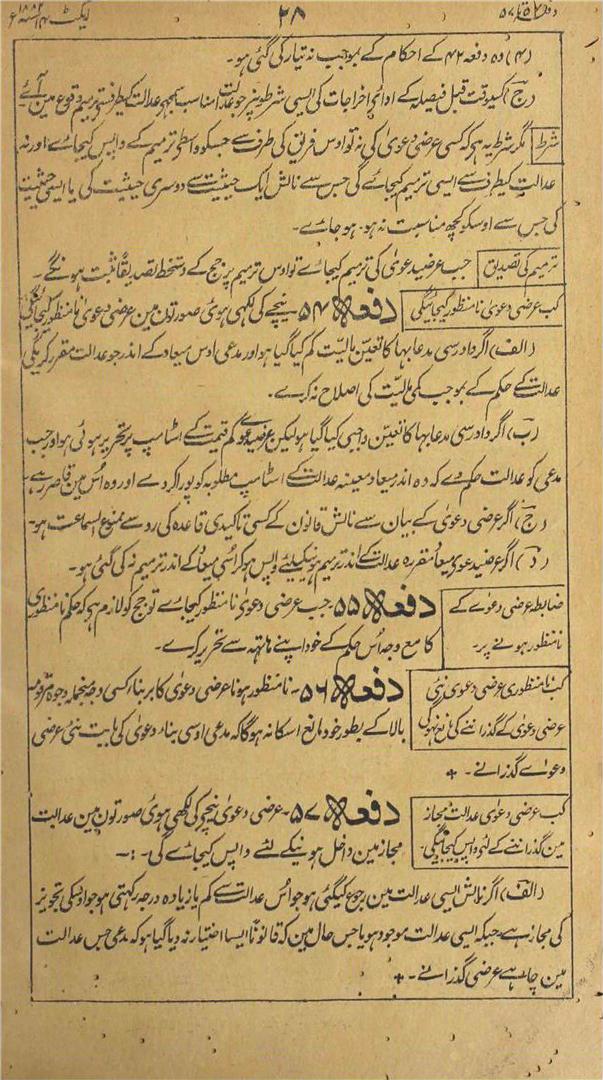 ایکٹ ۱۴ سنہ ۱۸۸۲ع
۲۸
دفعہ ۵۴ تا ۵۷
(۴) وہ دفعہ ۴۲ کے احکام کے بموجب نہ تیار کی گئی ہو۔
(ج) کسیوقت قبل فیصلہ کے ادائی اخراجات کی ایسی شرطونپر جو عدالت مناسب سمجھے عدالت کیطرف سے ترمیم وقوع مین آئے۔
شرط مگر شرط یہ ہی کہ کسی عرضی دعویٰ کی نہ تو اوس فریق کی طرف سے جسکو واسطے ترمیم کے واپس کیجاے اور نہ
عدالت کیطرف سے ایسی ترمیم کیجائے گی جس سے نالش ایک حیثیت سے دوسری حیثیت کی یا ایسی حیثیت
کی جس سے اوسکو کچھ مناسبت نہ ہو۔ ہوجاے۔
ترمیم کی تصدیق جب عرضیدعویٰ کی ترمیم کیجاے تو اوس ترمیم پر جج کے دستخط تصدیقًا ثبت ہونگے۔
کب عرضی دعویٰ نامنظور کیجائیگی دفعہ ۵۴۔ نیچے کی لکھی ہوئی صورتون مین عرضی دعویٰ نامنظور کیجائیگی
(الف) اگر دادرسی مدعابہا کا تعین مالیّت کم کیا گیا ہو اور مدعی اوس میعاد کے اندر جو عدالت مقرر کریگی
عدالت کے حکم کے بموجب کمی مالیت کی اصلاح نہ کرے۔
(ب) اگر دادرسی مدعابہا کا تعین واجبی کیا گیا ہو لیکن عرضیدعویٰ کم قیمت کے اسٹامپ پر تحریر ہوئی ہو اور جب
مدعی کو عدالت حکم دے کہ وہ اندر میعاد معینہ عدالت کے اسٹامپ مطلوبہ کو پورا کردے اور وہ اُس مین قاصر رہے
(ج) اگر عرضی دعویٰ کے بیان سے نالش قانون کے کسی تاکیدی قاعدہ کی رو سے ممنوع السماعت ہو۔
(د) اگر عرضیدعویٰ میعاد مقررہ عدالت کے اندر ترمیم ہونیکیلئے واپس ہو کر اُسی میعاد کے اندر ترمیم نہ کی گئی ہو۔
ضابطہ عرضی دعوے کے دفعہ ۵۵۔ جب عرضی دعویٰ نامنظور کیجاے تو جج کو لازم ہی کہ حکم نامنظوری
نامنظور ہونے پر۔ کا مع وجہ اُس حکم کے خود اپنے ہاتھ سے تحریر کرے۔
کب نامنظوری عرضی دعوی نئی دفعہ ۵۶۔ نامنظور ہونا عرضی دعویٰ کا بربناء کسی وجہ منجملہ وجوہ مرقومہ
عرضی دعویٰ کے گذراننے کی مانع نہوگی بالا کے بطور خود مانع اسکا نہ ہوگا کہ مدعی اوسی بناء دعویٰ کی بابت نئی عرضی
دعواے گذرانے۔
کب عرضی دعوی عدالت مجاز دفعہ ۵۷۔ عرضی دعویٰ نیچے کی لکھی ہوئی صورتون مین عدالت
مین گذراننے کے لئے واپس کیجائیگی۔ مجاز مین داخل ہونیکے لئے واپس کیجاے گی۔
(الف) اگر نالش ایسی عدالت مین رجوع کیگئی ہو جو اُس عدالت سے کم یا زیادہ درجہ رکہتی ہو جو اوسکی تجویز
کی مجاز ہے جبکہ ایسی عدالت موجود ہو یا جس حال مین کہ قانونًا ایسا اختیار نہ دیا گیا ہو کہ مدعی جس عدالت
مین چاہے عرضی گذرانے۔